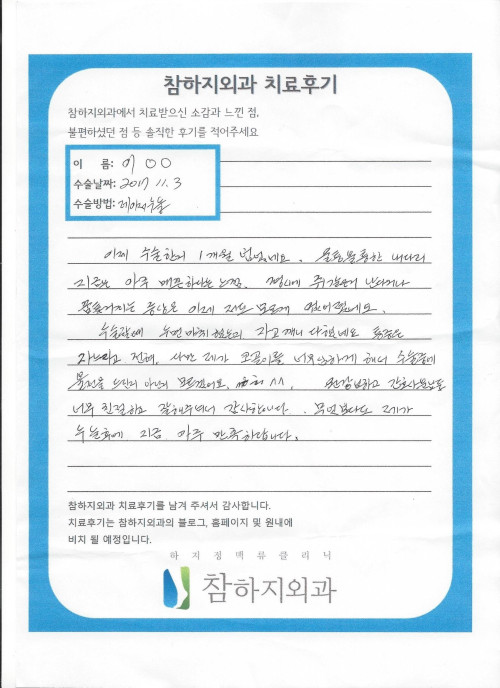 참하지외과 치료후기
참하지외과에서 치료받으신 소감과 느낀 점,
불편하셨던 점 등 솔직한 후기를 적어주세요
이 름: 이 ○○
수술날짜: 2017 11. 3
수술방법: 레이저수술
이제 수술한지 1개월 넘었네요. 울퉁불퉁한 내다리
지금은 아주 매끈하다는 느낌.
증상은 이제 저도 모르게 없어졌네요.
수술할때 수면 마취 자고 깨니 다
전혀. 다만 제가 코골이를 너무 심하게 해서 수술중에
원장님하고 간호사분들
너무 친절하고 잘해주셔서 감사합니다. 무엇보다도 제가
수술후에 지금 아주 만족합니다.
참하지외과 치료후기를 남겨 주셔서 감사합니다.
치료후기는 참하지외과의 블로그, 홈페이지 및 원내에
비치 될 예정입니다.
하지정맥류클리닉
참하지외과